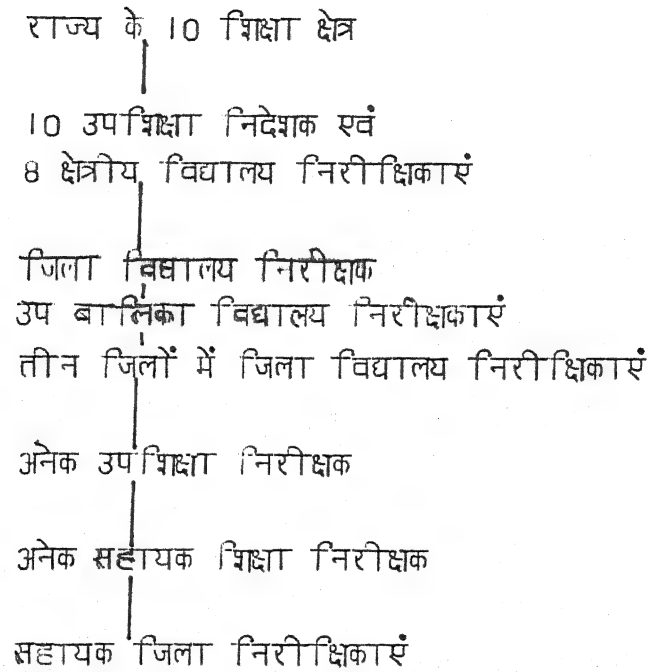 राज्य के 10 शिक्षा क्षेत्र
10 उपशिक्षा निदेशक एवं
8 क्षेत्रीय विद्यालय निरीक्षिकाएं
जिला विद्यालय निरीक्षक
उप बालिका विद्यालय निरीक्षकाएं
तीन जिलों में जिला विद्यालय निरीक्षिकाएं
अनेक उपशिक्षा निरीक्षक
अनेक सहायक शिक्षा निरीक्षक
सहायक जिला निरीक्षिकाएं